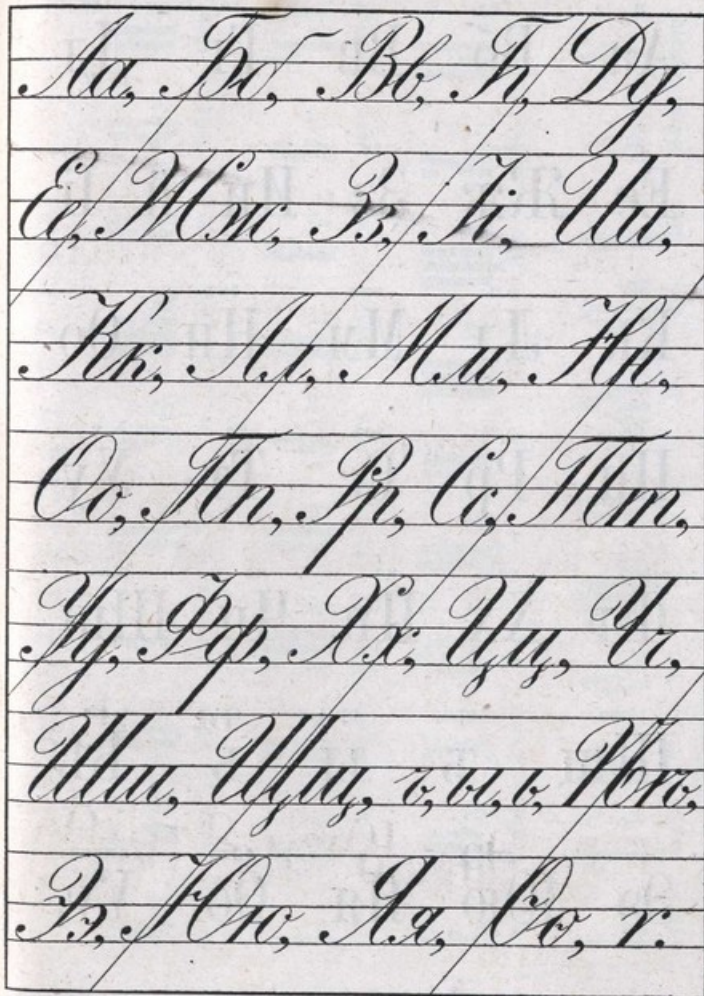 Аа, Бб, Вв, Гг, Дд,
Ее, Жж, Зз, Іі, Ии,
Кк, Лл, Мм, Нн,
Оо, Пп, Рр, Сс, Тт,
Уу, Фф, Хх, Цц, Чч,
Шш, Щщ, ъ, ы, ь, Ѣѣ,
Ээ, Юю, Яя, Ѳѳ, ѵ.